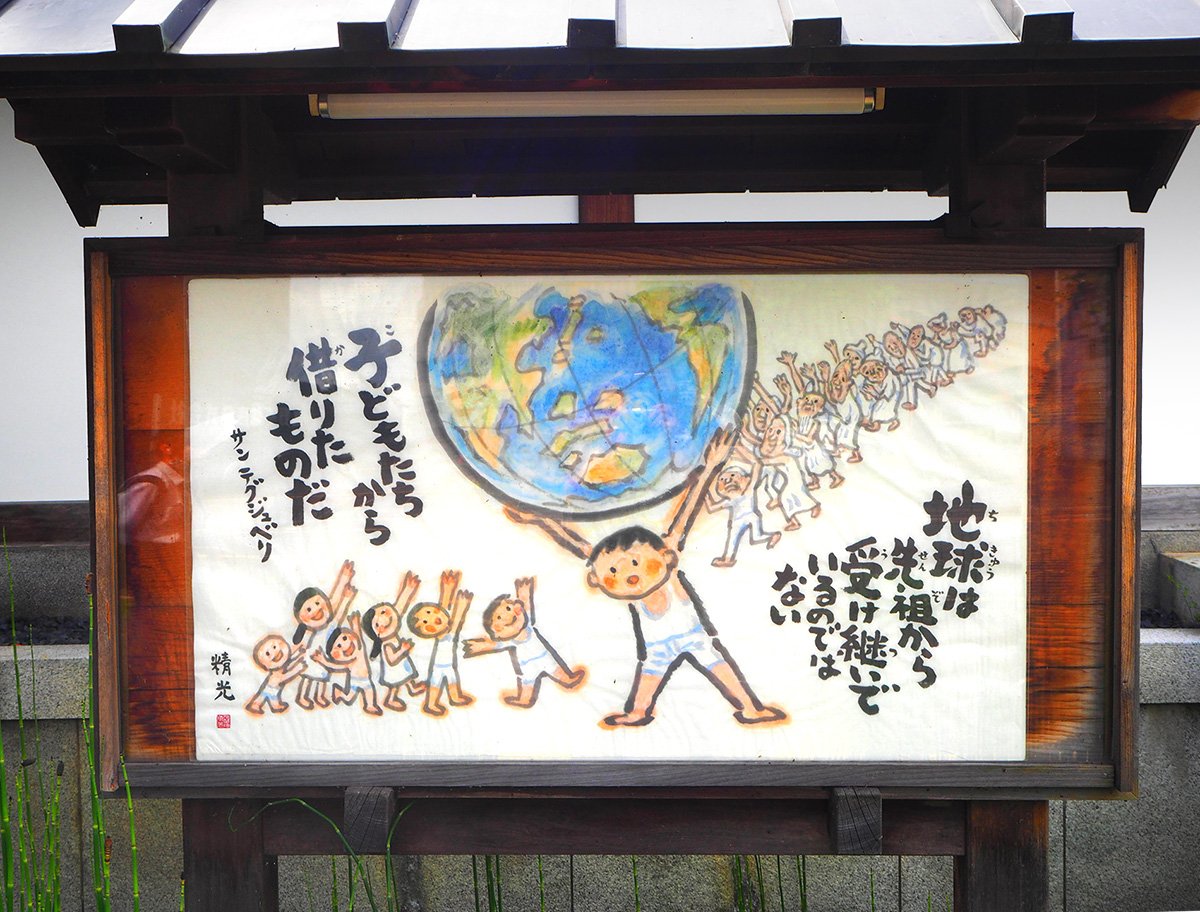 地球は
先祖から
受け継いで
いるのでは
ない
子どもたち
から
借りた
ものだ
サン テグジュベリ
精光